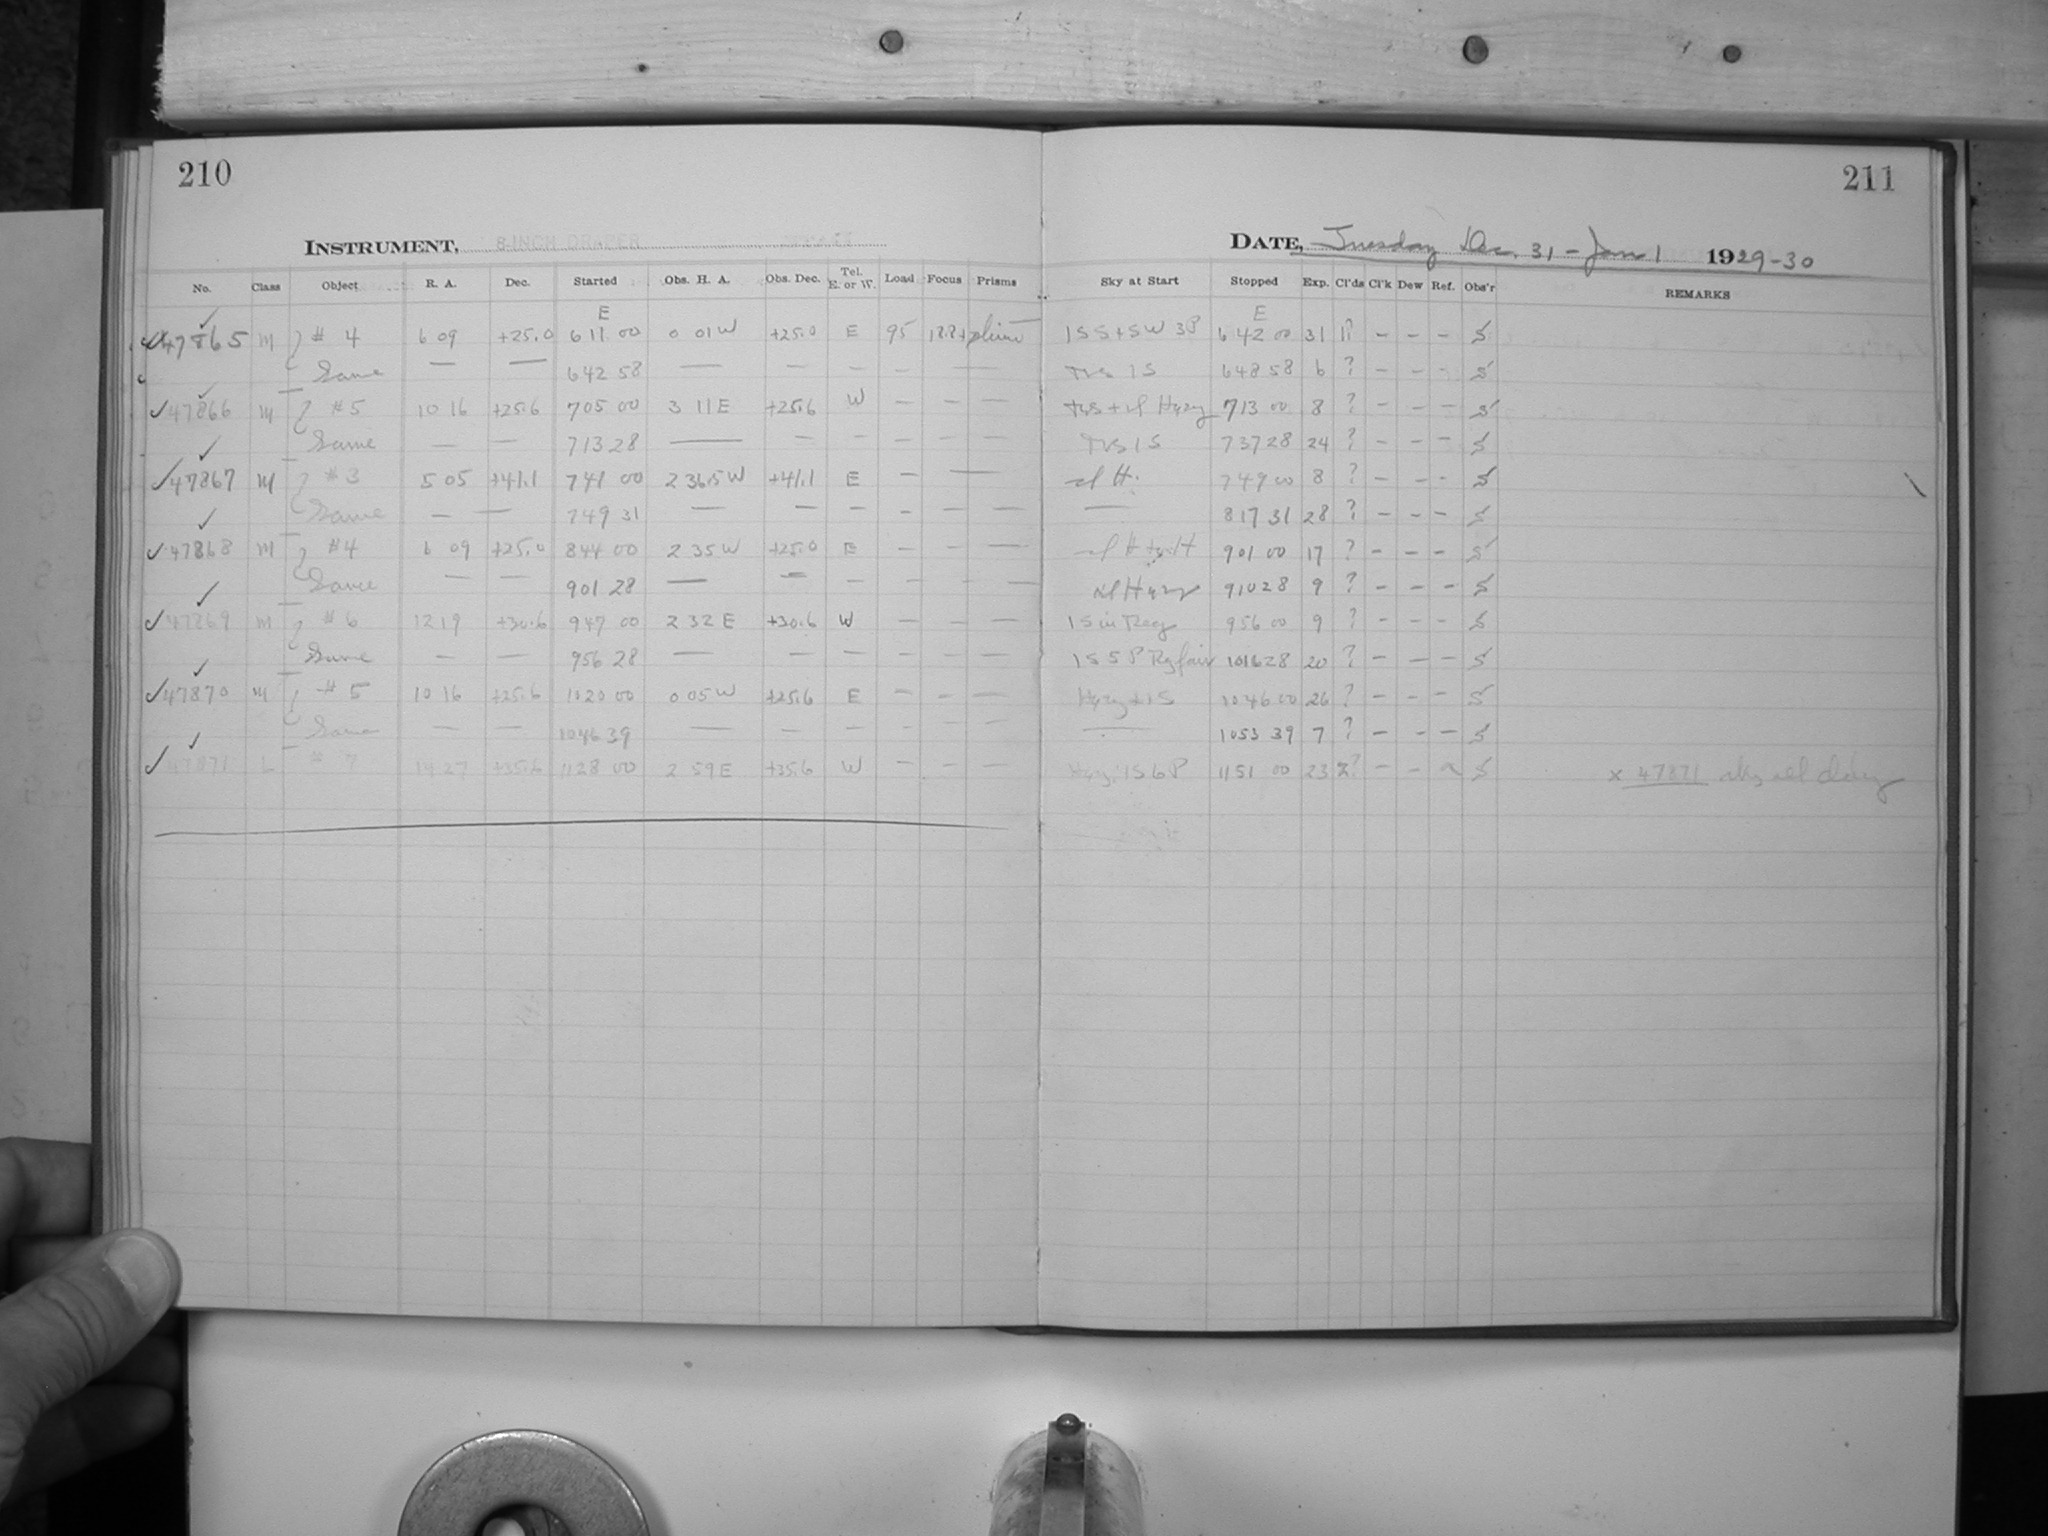 210
211
INSTRUMENT, 8-INCH DRAPER
DATE, Tuesday Dec. 31 - Jan 1 1929-30
No. Class Object R. A. Dec. Started Obs. H. A. Obs. Dec. Tel. E. or W. Load Focus Prisms Sky at Start Stopped Exp. Cl'ds Cl'k Dew Ref. Obs'r REMARKS
E E
✓47865 M # 4 6 09 +25.0 6 11 00 0 01 W +25.0 E 95 1 S S + SW 3P 6 42 00 31 - - - S
Same — — 6 42 58 — — - - — 1 S 6 48 58 6 ? - - - S
✓47866 M # 5 10 16 +25.6 7 05 00 3 11 E +25.6 W - - — Hazy 7 13 00 8 ? - - - S
Same — — 7 13 28 — — - - - — 1 S 7 37 28 24 ? - - - S
✓47867 M # 3 5 05 +41.1 7 41 00 2 36.5 W +41.1 E - — H. 7 49 00 8 ? - - - S
Same — — 7 49 31 — — - - - — — 8 17 31 28 ? - - - S
✓47868 M # 4 6 09 +25.0 8 44 00 2 35 W +25.0 E - - — 9 01 00 17 ? - - - S
Same — — 9 01 28 — — - - - — Hazy 9 10 28 9 ? - - - S
✓47869 M # 6 12 19 +30.6 9 47 00 2 32 E +30.6 W - - — 1 S in Reg 9 56 00 9 ? - - - S
Same — — 9 56 28 — — - - - — 1 S 5 P Rg fair 10 16 28 20 ? - - - S
✓47870 M # 5 10 16 +25.6 10 20 00 0 05 W +25.6 E - - — Hazy + 1 S 10 46 00 26 ? - - - S
Same — — 10 46 39 — — - - - — — 10 53 39 7 ? - - - S
✓47871 L # 7 14 27 +35.6 11 28 00 2 59 E +35.6 W - - — 1 S 6 P 11 51 00 23 ? - - S x 47871